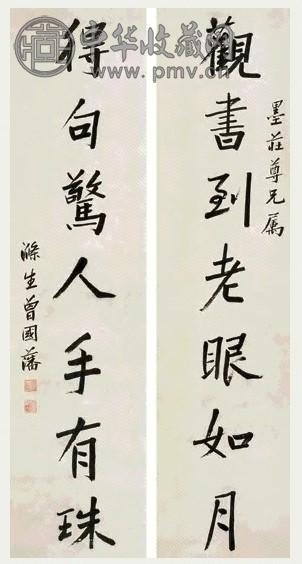 觀書到老眼如月
墨莊尊兄屬
得句驚人手有珠
滌生曾國藩
中华收藏网
www.pmv.cn